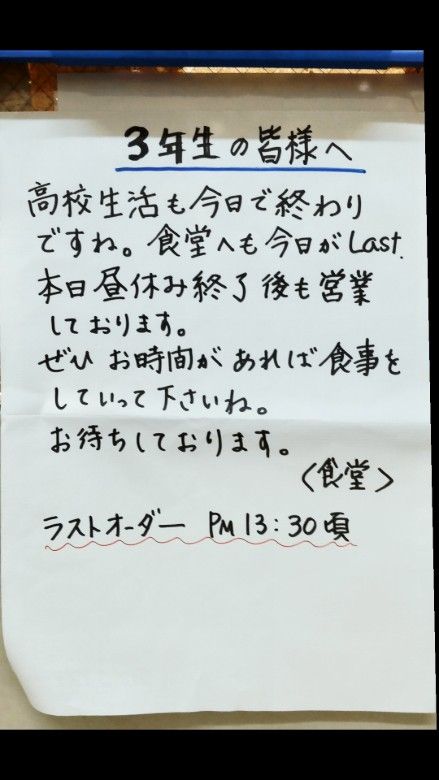 3年生の皆様へ
高校生活も今日で終わり
ですね。食堂へも今日がLast.
本日昼休み終了後も営業
しております。
ぜひ お時間があれば食事を
していって下さいね。
お待ちしております。
〈食堂〉
ラストオーダー PM 13:30頃